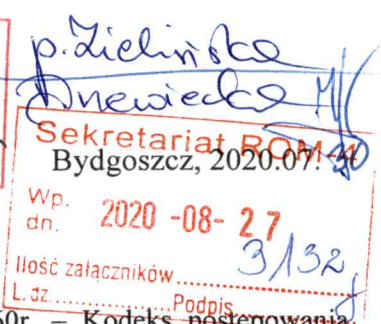 p. Zielińska
Drewiecka
Sekretariat ROM-4
Bydgoszcz, 2020.07.30
Wp.
dn. 2020 -08- 27
3/132
Ilość załączników
L.dz. Podpis
60r. – Kodeks postępowania